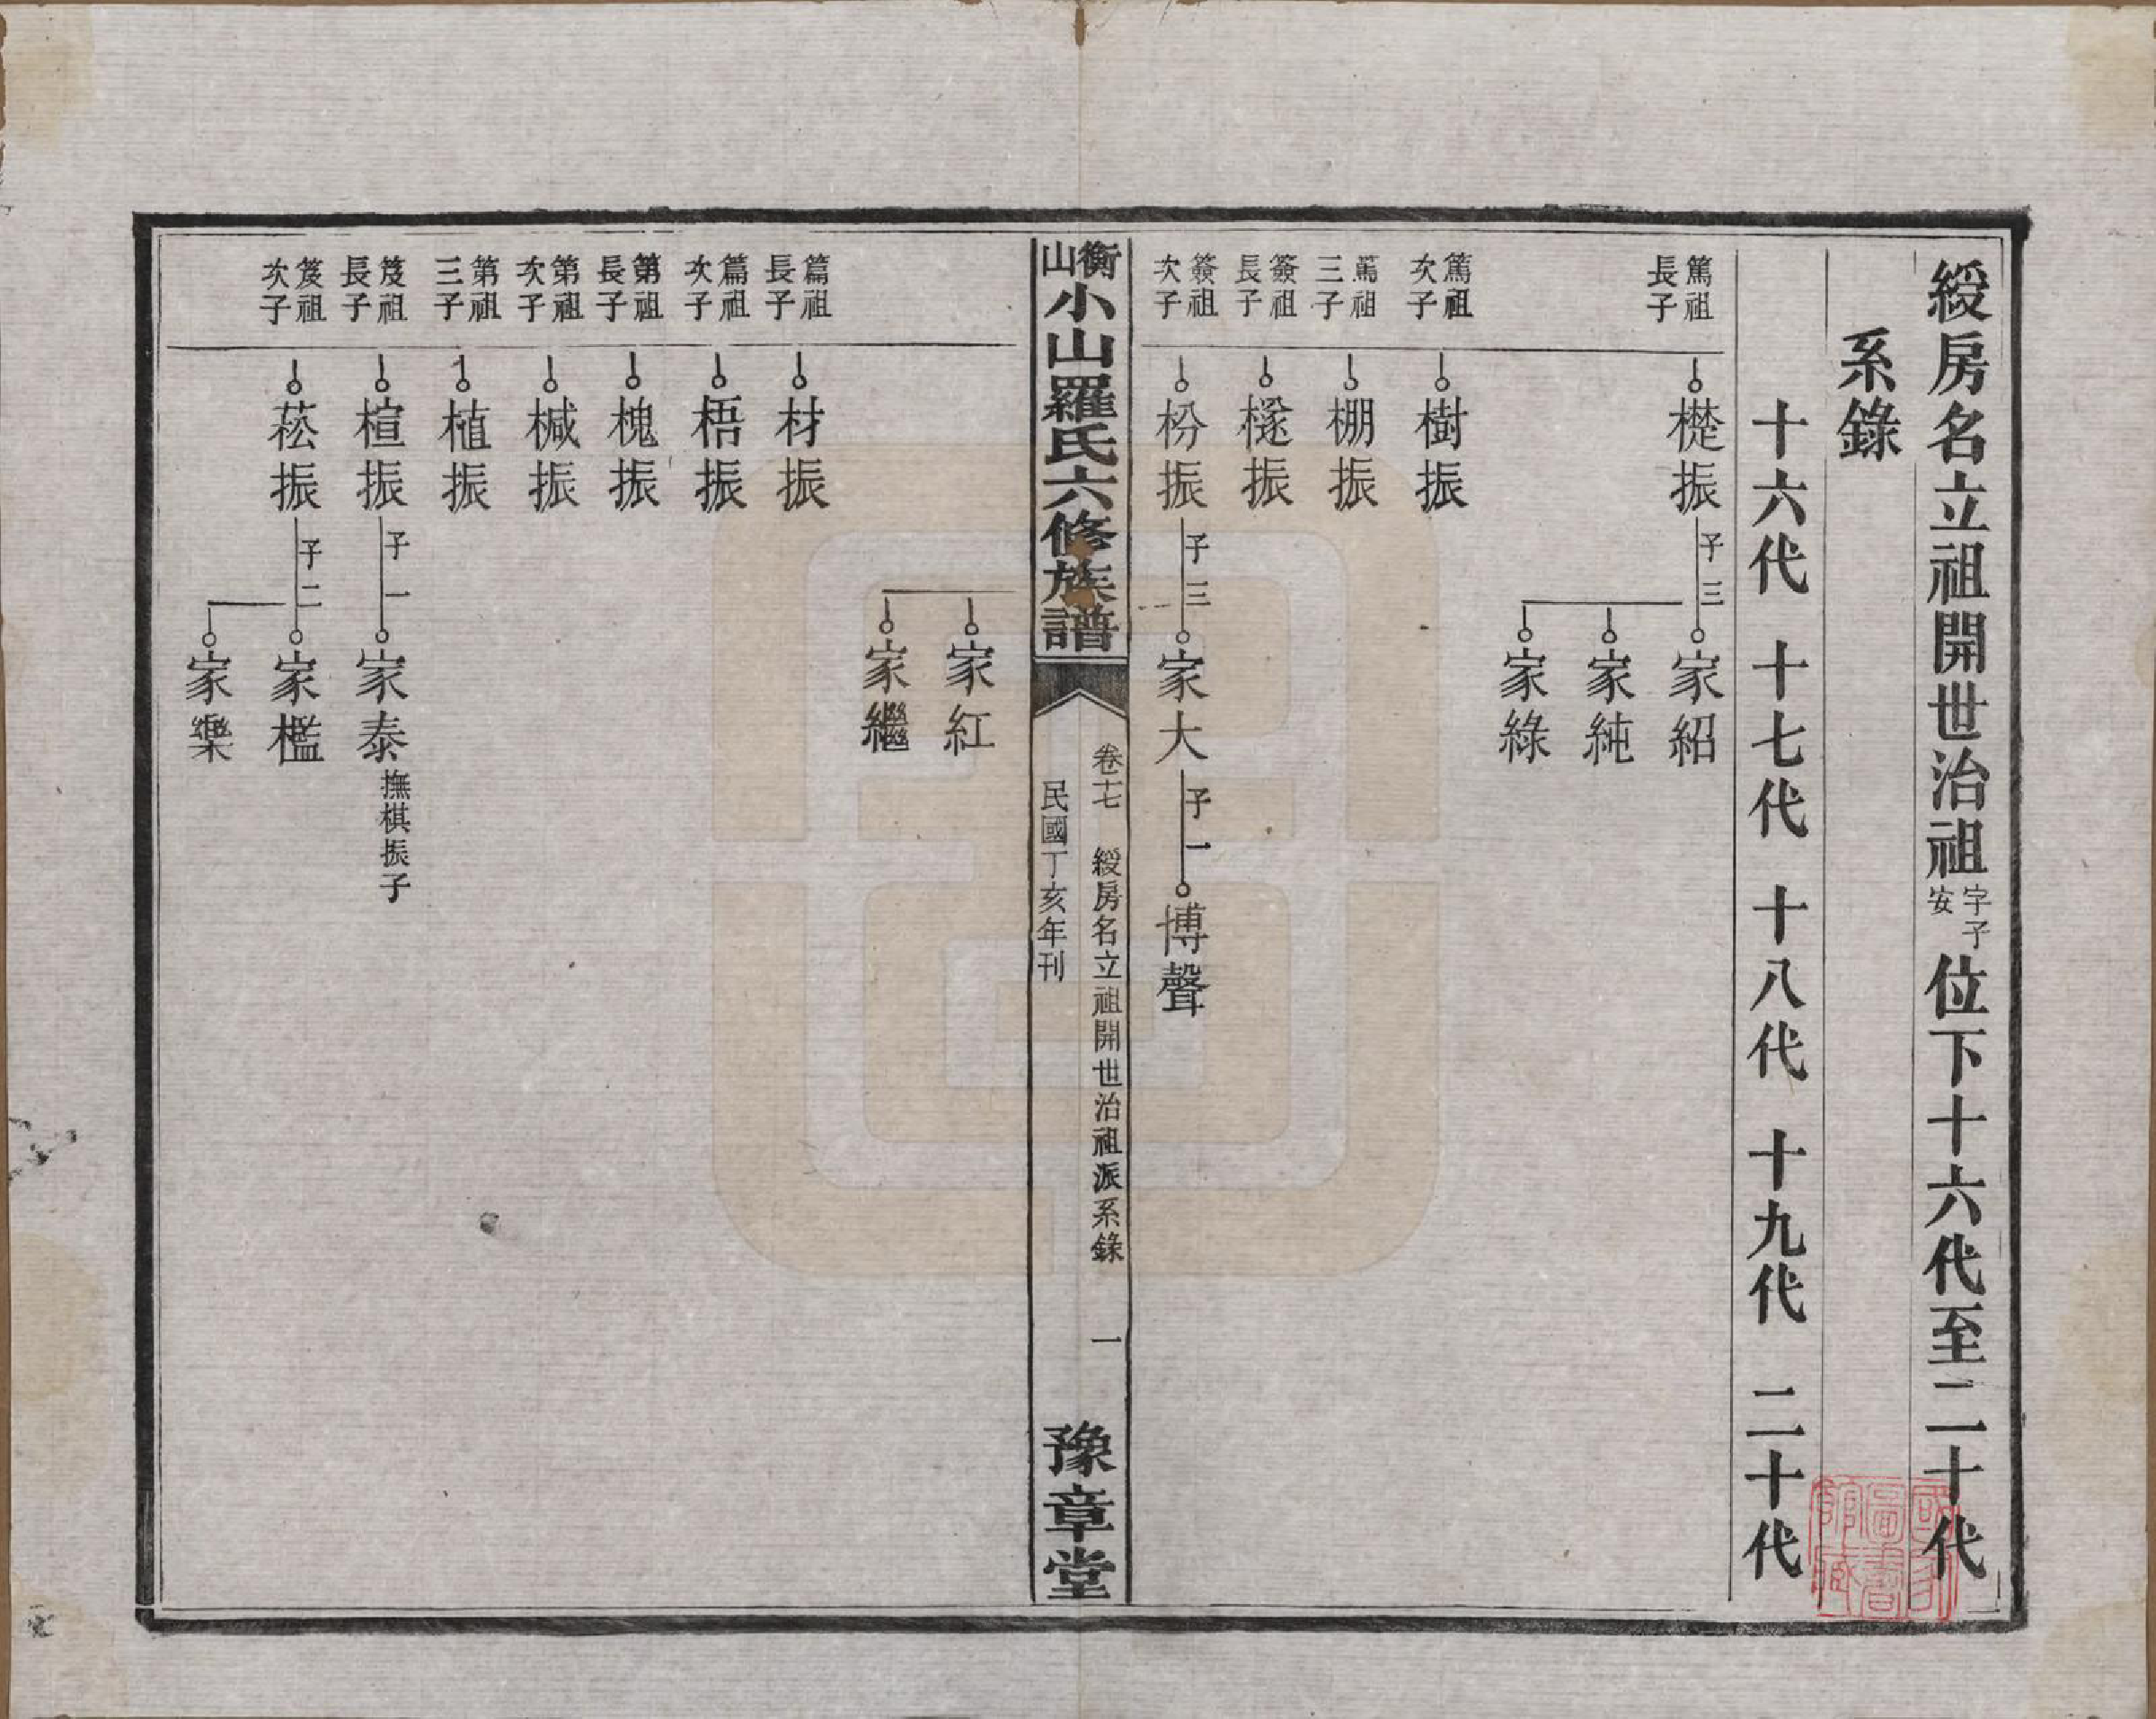 綬房名立祖開世治祖字子安位下十六代至二十代
系錄
十六代 十七代 十八代 十九代 二十代
篤祖長子 楚振 子三 家紹
家純
家綠
篤祖次子 樹振
篤祖三子 棚振
簽祖長子 檖振
簽祖次子 枌振 子三 家大 子一 博聲
衡山小山羅氏六修族譜 卷十七 綬房名立祖開世治祖派系錄 一 豫章堂
民國丁亥年刊
家紅
家繼
篇祖長子 材振
篇祖次子 梧振
第祖長子 槐振
第祖次子 椷振
第祖三子 植振
笈祖長子 楦振 子一 家泰 撫棋振子
笈祖次子 菘振 子二 家檻
家樂
國家圖書館藏